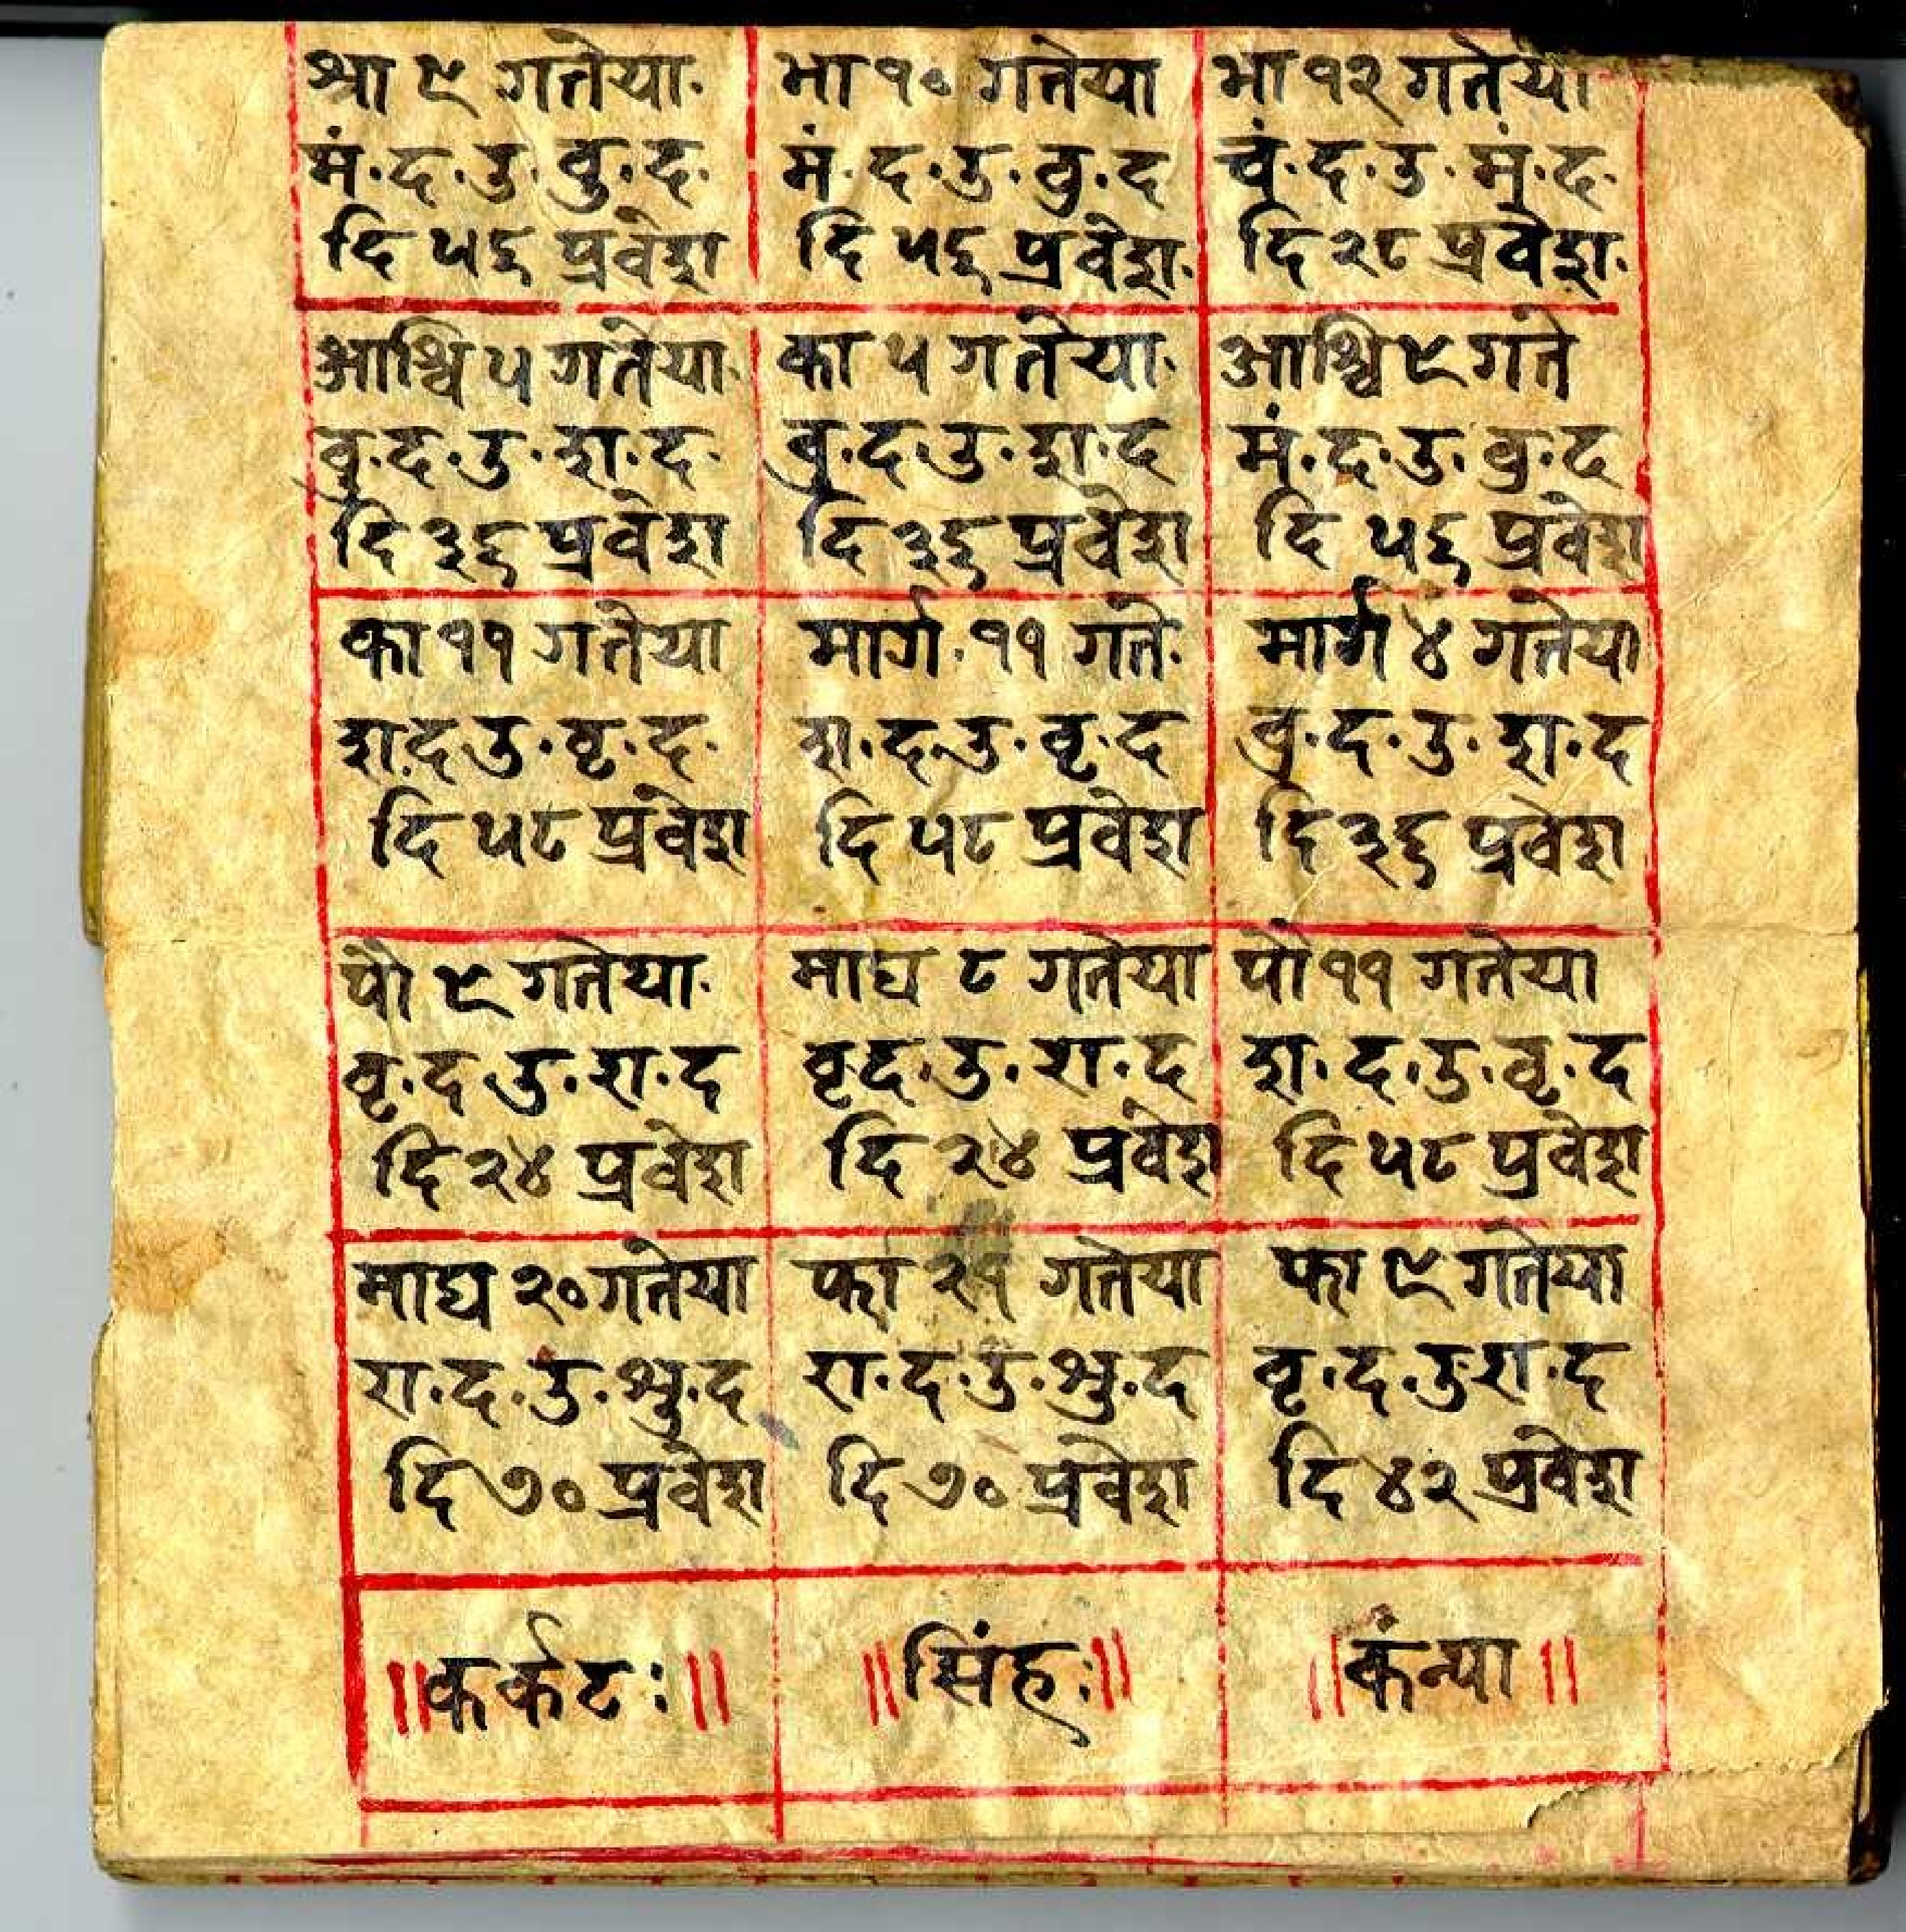 श्रा ९ गतेया·
मं·द·उ·वु·द·
दि ५६ प्रवेश
भा १० गतेया
मं·द·उ·वु·द
दि ५६ प्रवेश·
भा १२ गतेया
चं·द·उ·मं·द·
दि २८ प्रवेश·
आश्वि ५ गतेया·
वु·द·उ·श·द·
दि ३६ प्रवेश
का ५ गतेया·
वु·द·उ·श·द
दि ३६ प्रवेश
आश्वि ९ गते
मं·द·उ·वु·द
दि ५६ प्रवेश
का ११ गतेया
श·द·उ·वृ·द·
दि ५८ प्रवेश
मार्ग·११ गते·
श·द·उ·वृ·द
दि ५८ प्रवेश
मार्ग ४ गतेया
वु·द·उ·श·द
दि ३६ प्रवेश
पौ ९ गतेया·
वृ·द·उ·रा·द
दि २४ प्रवेश
माघ ८ गतेया
वृ·द·उ·रा·द
दि २४ प्रवेश
पौ ११ गतेया
श·द·उ·वृ·द
दि ५८ प्रवेश
माघ २० गतेया
रा·द·उ·शु·द
दि ७० प्रवेश
फा गतेया
रा·द·उ·शु·द
दि ७० प्रवेश
फा ९ गतेया
वृ·द·उ·रा·द
दि ४२ प्रवेश
॥कर्कटः॥
॥सिंहः॥
॥कंन्या॥